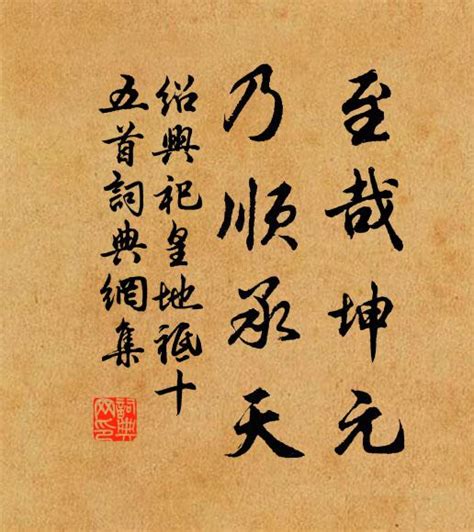 至哉坤元
乃順承天
紹興祀皇地祗十
五首詞典網集
詞典
网印